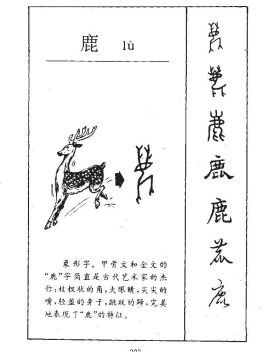 鹿 lù
象形字。甲骨文和金文的
“鹿”字简直是古代艺术家的杰
作:枝杈状的角,大眼睛,尖尖的
嘴,轻盈的身子,跳跃的蹄,完美
地表现了“鹿”的特征。
鹿
鹿